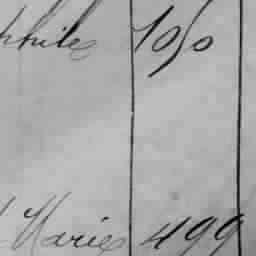 phile 1050
Marie 499